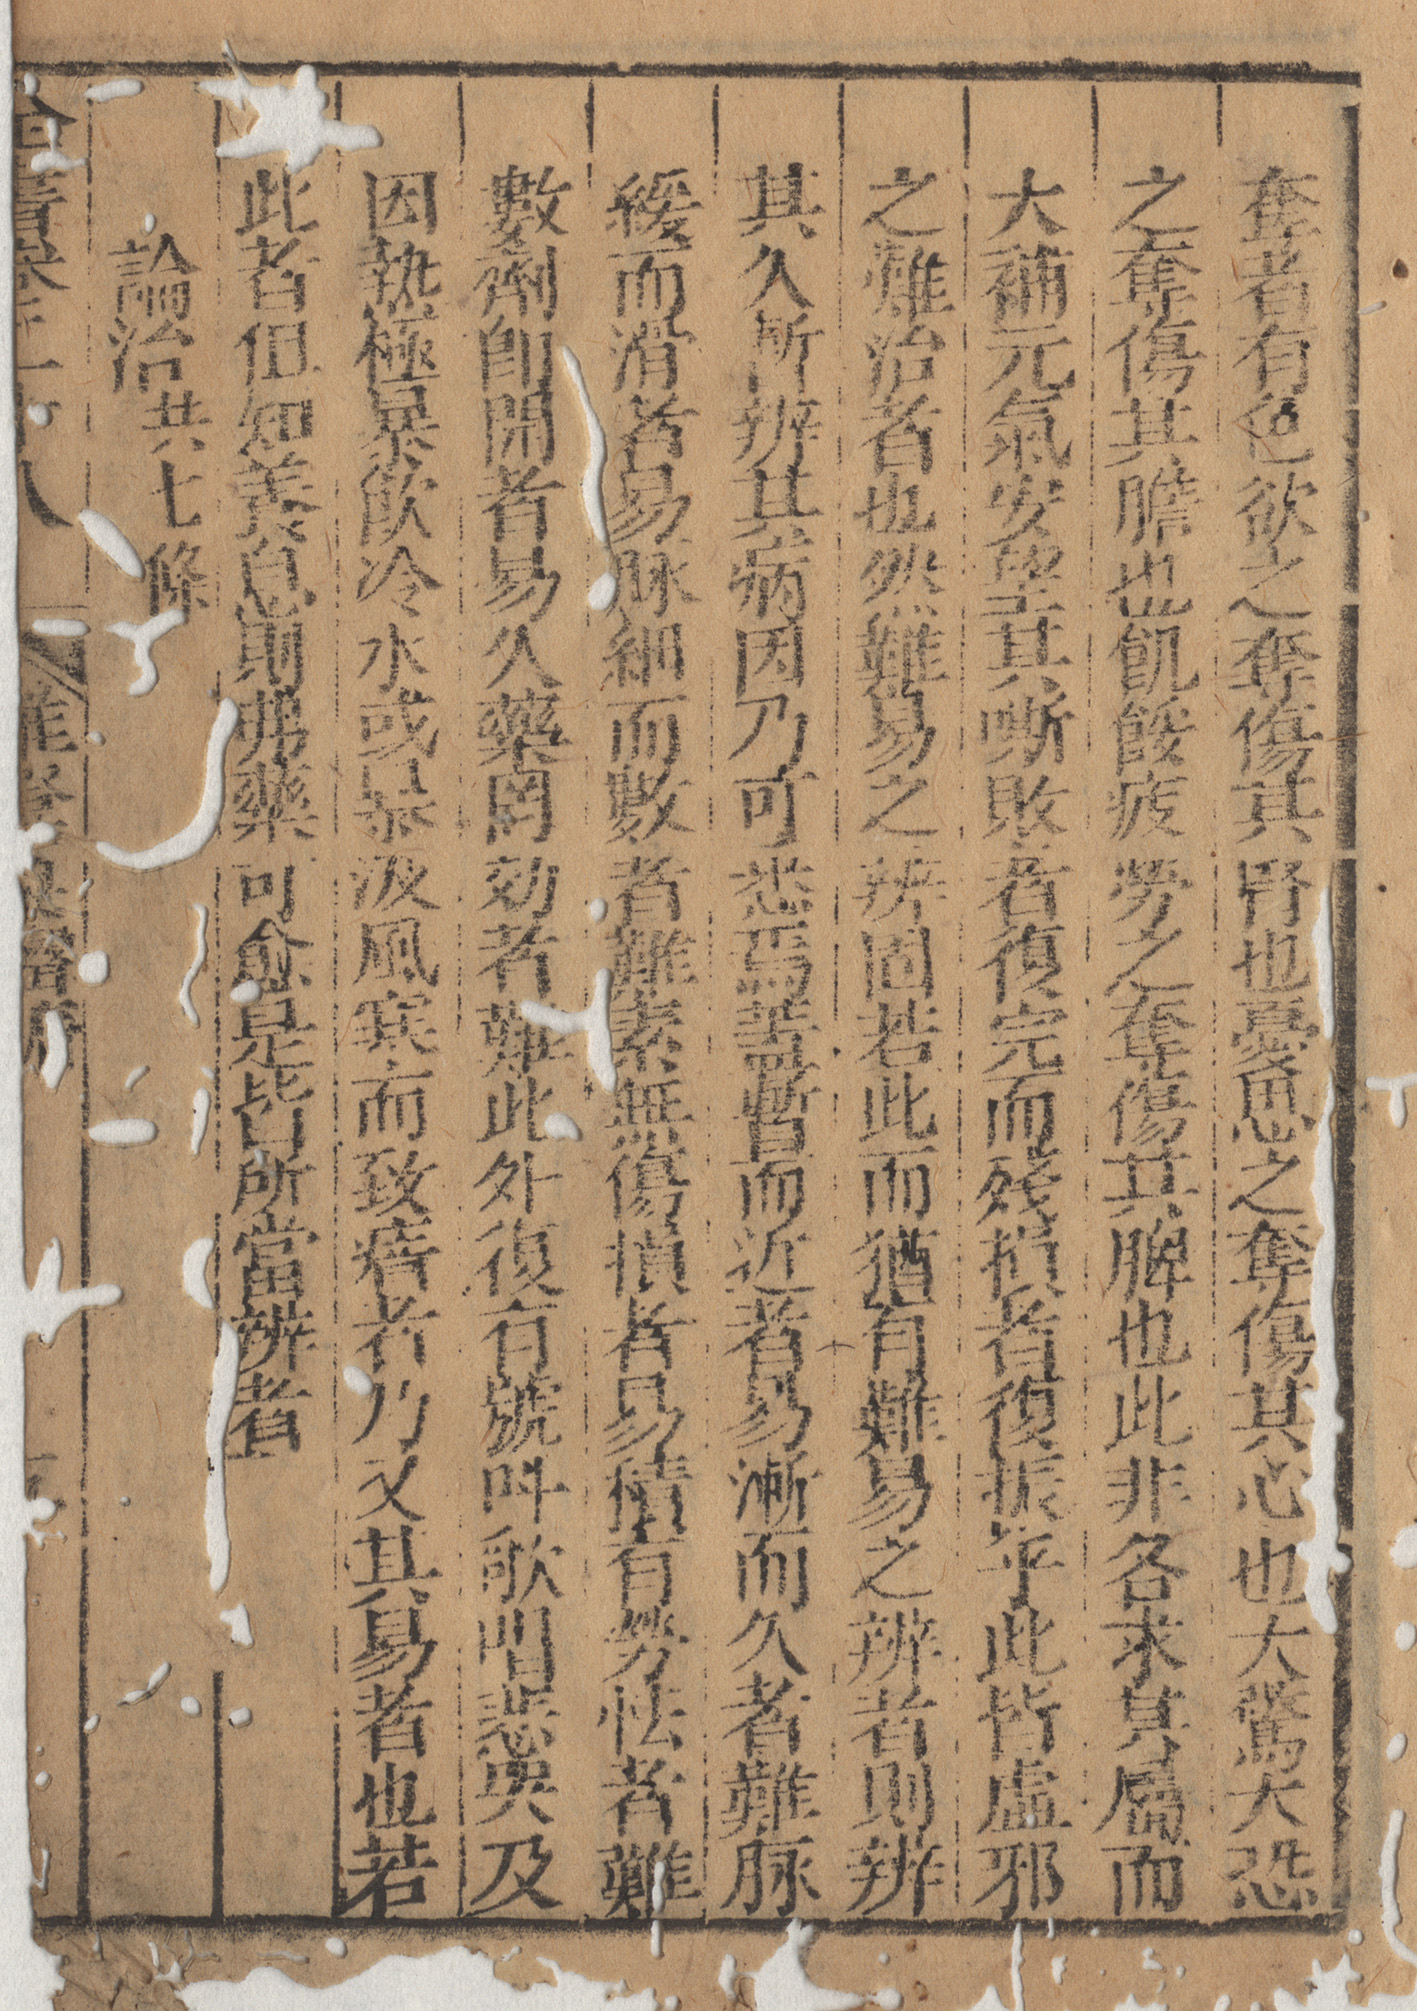 奪者有色欲之奪傷其腎也憂思之奪傷其心也大驚大恐
之奪傷其膽也飢餒疲勞之奪傷其脾也此非各求其屬而
大補元氣安望其嘶敗者復完而殘損者復振乎此皆虛邪
之難治者也然難易之辨固若此而猶有難易之辨者則辨
其久所辨其病因乃可悉焉蓋暫而近者易漸而久者難脉
緩而滑者易脉細而數者難素無傷損者易積有勞怯者難
數劑即開者易久藥罔効者難此外復有號呌歌唱悲哭及
因熱極暴飲冷水或暴汲風寒而致瘖者乃又其易者也若
此者但知養息則弗藥可愈是皆所當辨者
論治共七條